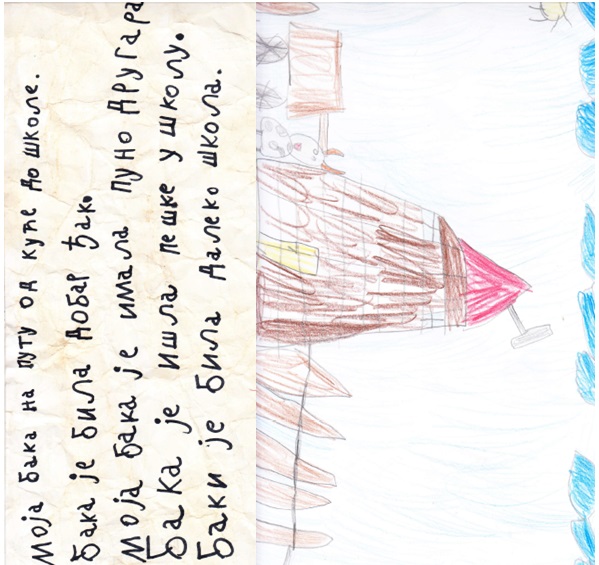 Моја бака на путу од куће до школе.
Бака је била добар ђак.
Моја бака је имала пуно другара
Бака је ишла пешке у школу.
Баки је била далеко школа.